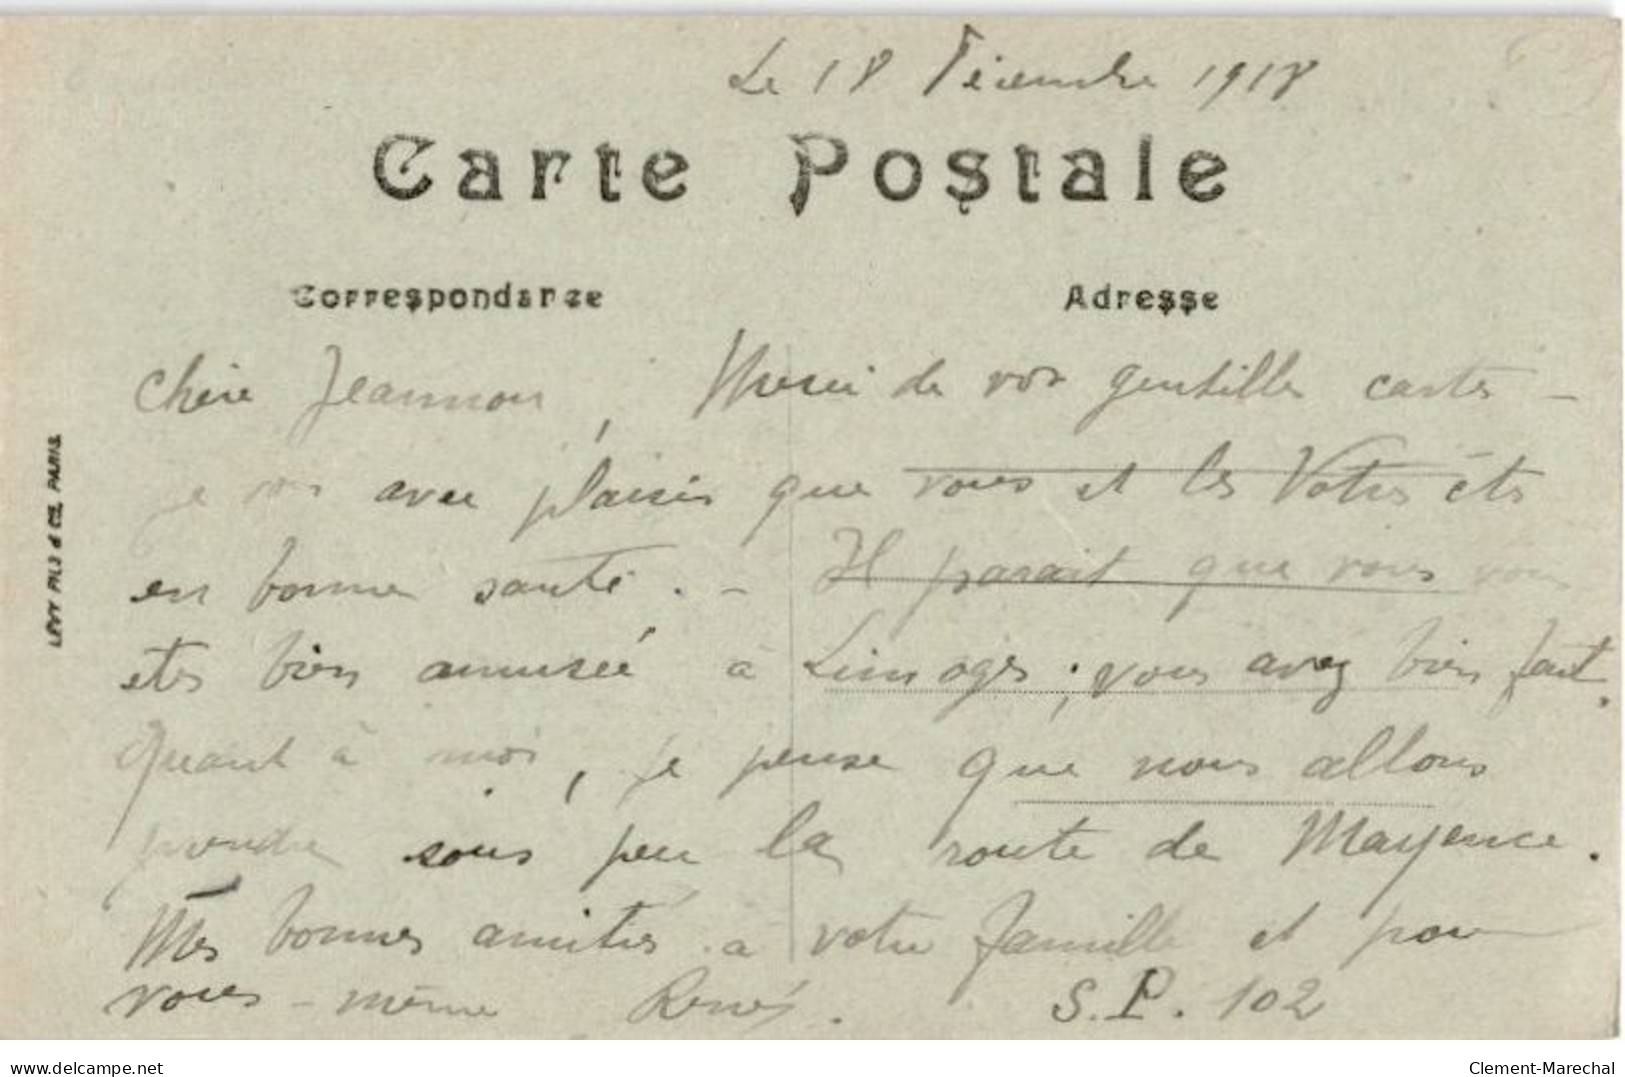 Le 18 Décembre 1918
Carte Postale
Correspondance
Adresse
Chère Jeannon, Merci de vos gentilles cartes –
je vois avec plaisir que vous et les Votres êtes
en bonne santé. – Il parait que vous vous
etes bien amusée à Limoges ; vous avez bien fait.
Quant à moi, je pense que nous allons
prendre sous peu la route de Mayence.
Mes bonnes amitiés à votre famille et pour
vous-même René. S.P. 102
LÉVY FILS & CIE, PARIS
delcampe.net
Clement-Marechal